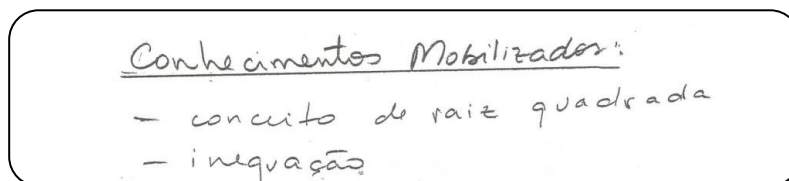 Conhecimentos Mobilizados:
- conceito de raiz quadrada
- inequação